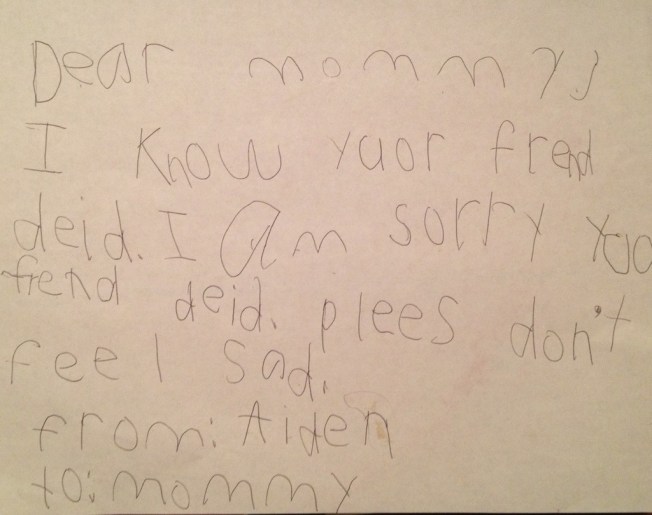 Dear mommy,
I Know yuor frend
deid. I am sorry yuo
frend deid. plees don't
feel sad.
from: Aiden
to: mommy